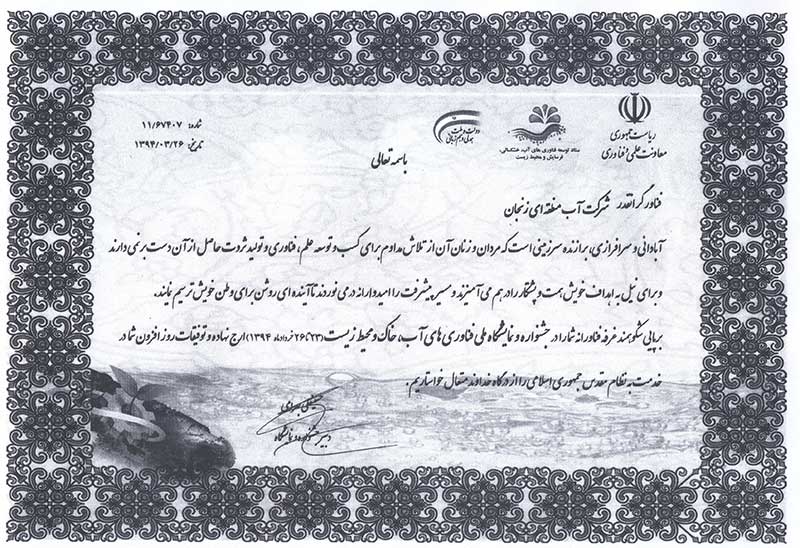 ریاست جمهوری
معاونت علمی و فناوری
ستاد توسعه فناوری های آب، خشکسالی،
فرسایش و محیط زیست
دولت و ملت
همدلی و هم زبانی
شماره: ۱۱/۶۷۴۰۷
تاریخ: ۱۳۹۴/۰۳/۲۶
باسمه تعالی
فناور گرانقدر شرکت آب منطقه ای زنجان
آبادانی و سرافرازی، برازنده سرزمینی است که مردان و زنان آن از تلاش مداوم برای کسب و توسعه علم، فناوری و تولید ثروت حاصل از آن دست بر نمی دارند
و برای نیل به اهداف خویش همت و پشتکار را در هم می آمیزند و مسیر پیشرفت را امیدوارانه در می نوردند تا آینده ای روشن برای وطن خویش ترسیم نمایند.
برپایی شکوهمند غرفه فناورانه شما را در جشنواره و نمایشگاه ملی فناوری های آب، خاک و محیط زیست (۲۳ تا ۲۶ خرداد ماه ۱۳۹۴) ارج نهاده و توفیقات روز افزون شما در
خدمت به نظام مقدس جمهوری اسلامی را از درگاه خداوند متعال خواستاریم.
دبیر جشنواره و نمایشگاه